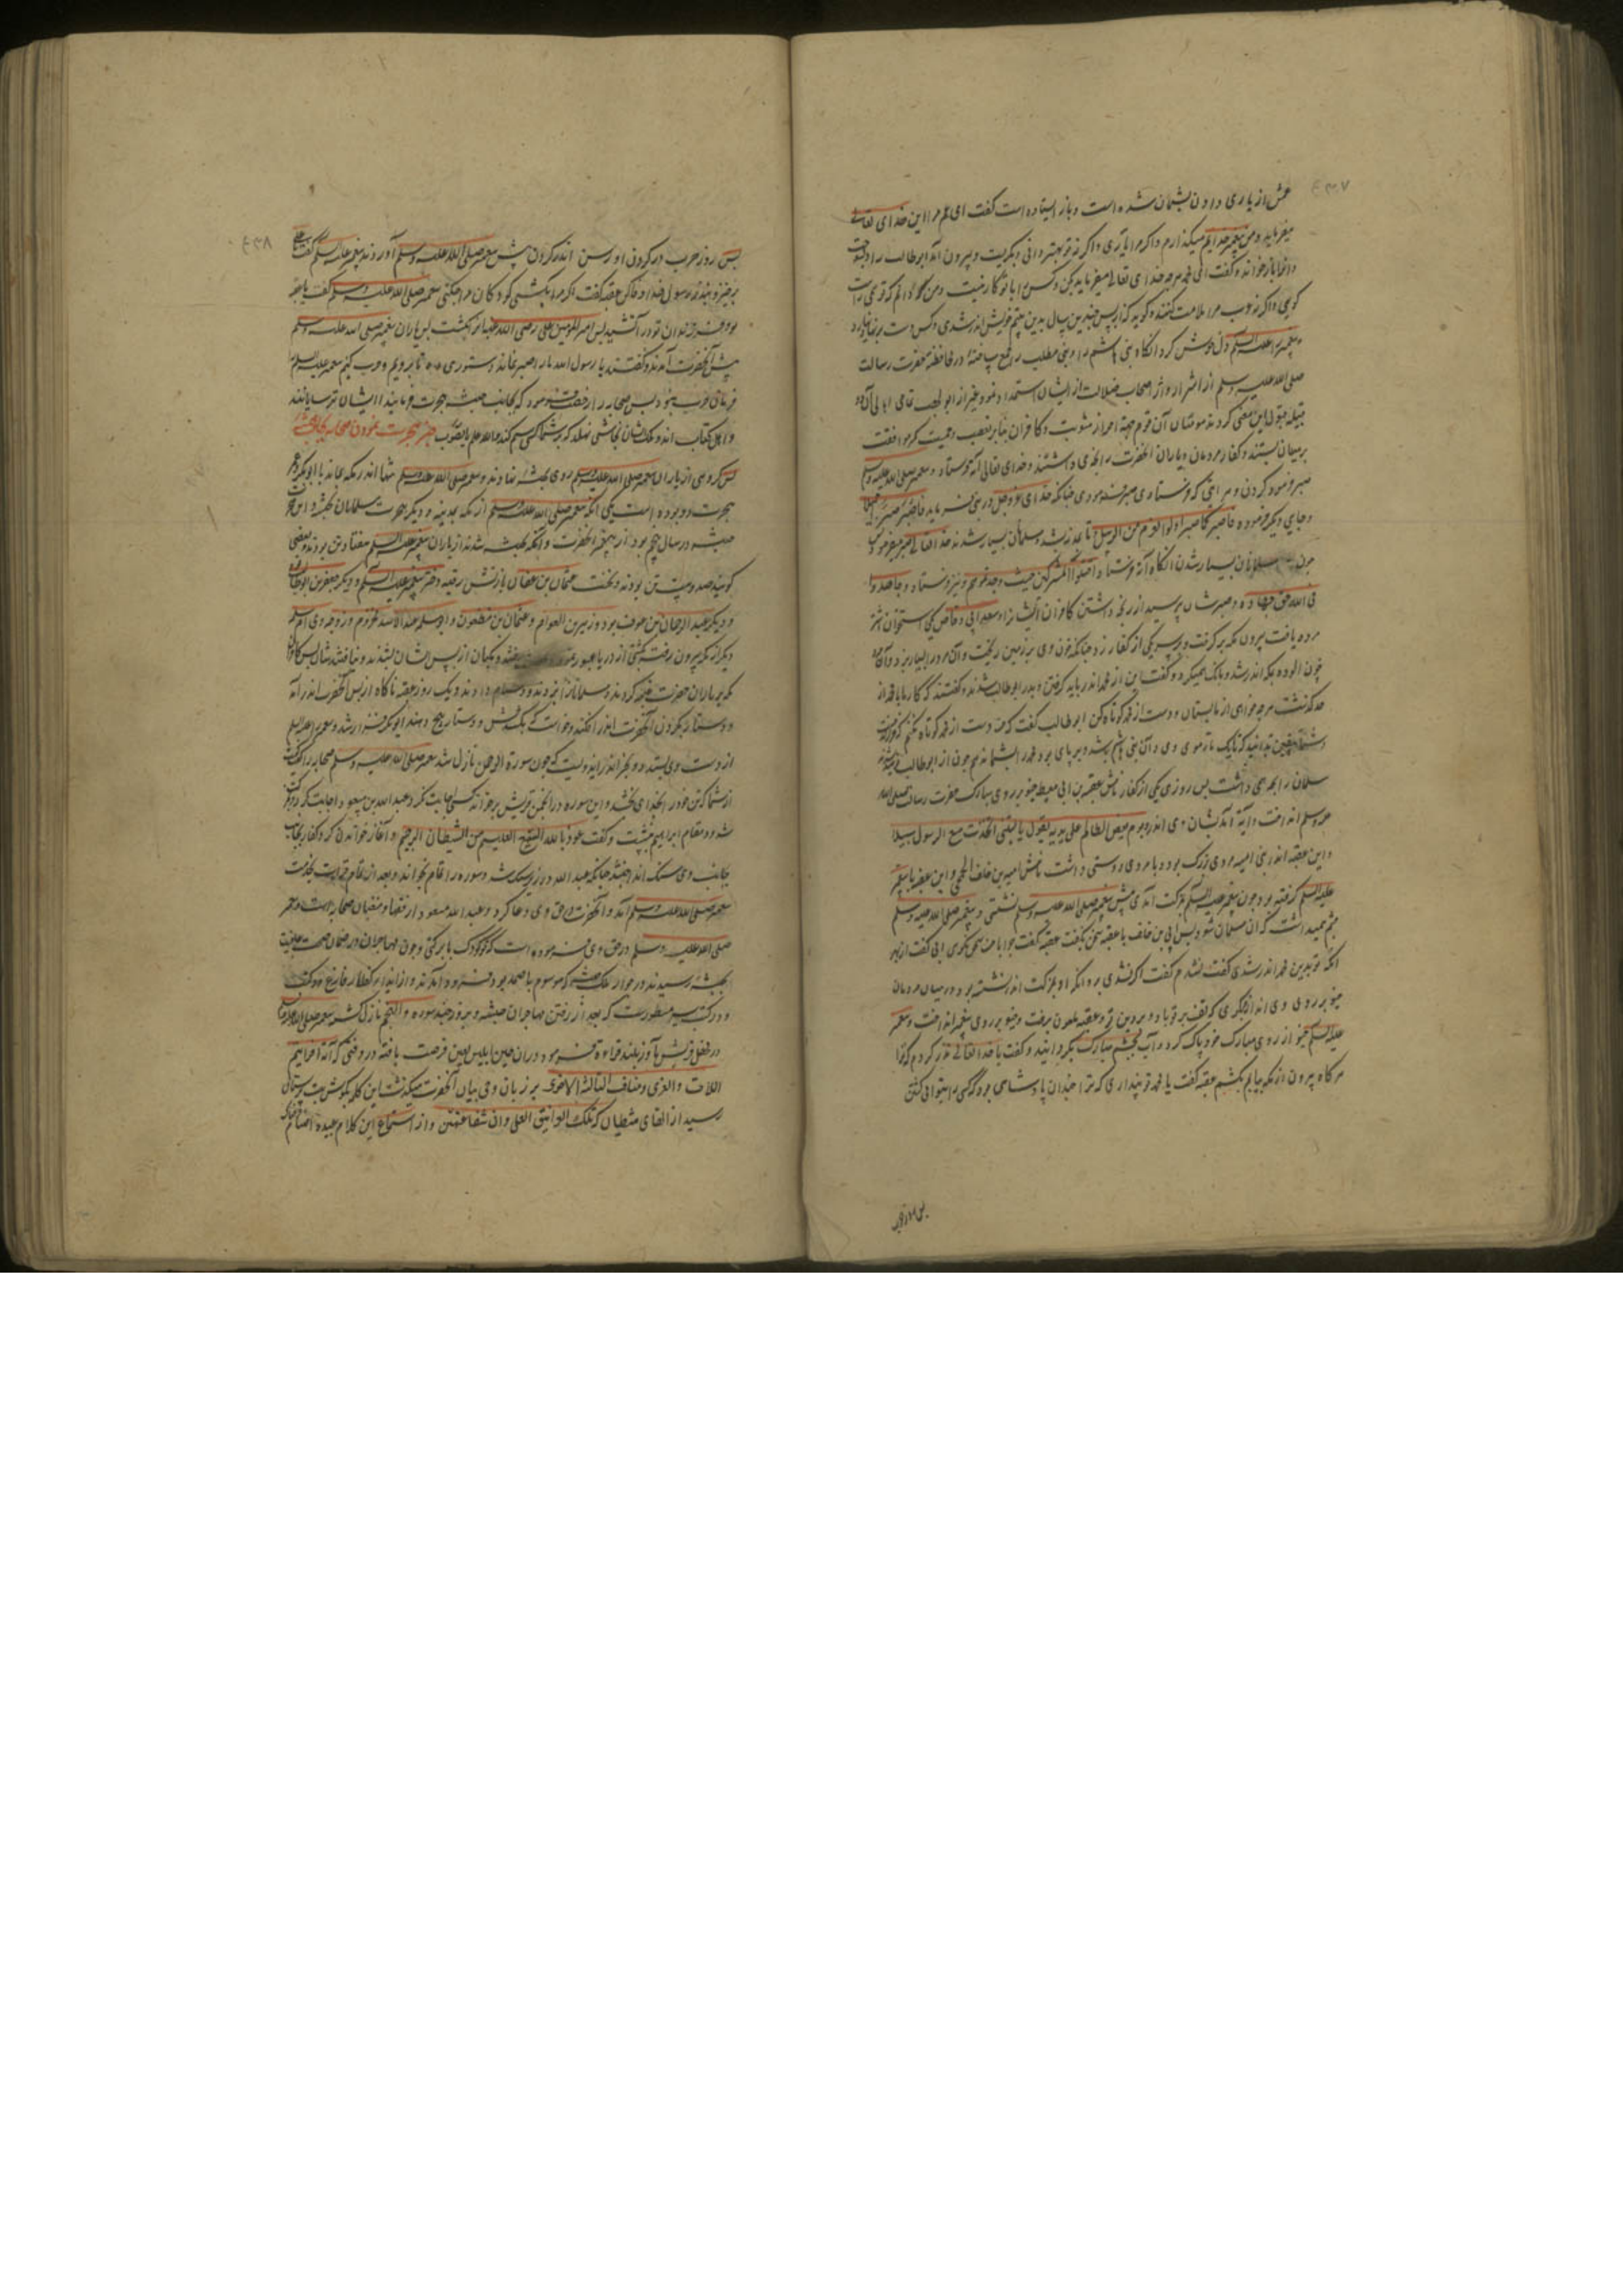 عمش از یاری دادن پشیمان شده است و باز ایستاده است گفت ای عم مرا این خدای تعالی
میفرماید و من پیغمبر خدایم میگذارم و اگر مرا یاری و اگر نه تو بهتر دانی و بگریست و بیرون آمد ابوطالب را دل بسوخت
و او را باز خواند و گفت ای محمد هر چه خدای تعالی میفرماید بکن و کس را با تو کار نیست و من که دانم که تو می راست
گویی و اگر نه عرب مرا ملامت کنند و گویند که از پس چندین سال بدین یتیم خویش اندر شدی و کس دست بر نیارد
و پیغمبر را علیه السلم دل خوش کرد آنگاه بنی هاشم را و بنی مطلب را جمع ساخته در محافظت حضرت رسالت
صلی الله علیه وسلم از اشرار و از اصحاب ضلالت از ایشان استمداد نمود و بغیر از ابولهب تمامی اهالی آن دو
قبیله قبول این معنی کردند مومنان آن قوم بجهة احراز مثوبت و کافران بنابر تعصب و حمیت کمر موافقت
بر میان بستند و کفار مردمان و یاران آنحضرت را رنجه می داشتند و خدای تعالی آیه فرستاد و پیغمبر صلی الله علیه وسلم
صبر فرمود کردن و هر آیتی که فرستادی صبر فرمودی چنانکه خدای عز و جل در نبی میفرماید فاصبر صبرا جمیلا
و جای دیگر فرموده فاصبر کما صبر اولوا العزم من الرسل تا مدتی شد و مسلمان بسیار شدند خدا تعالی صبر میفرمود
چون مسلمانان بسیار شدند آنگاه آیه فرستاد اقتلوا المشرکین حیث وجدتموهم و نیز فرستاد و جاهدوا
فی الله حق جهاده و صبرشان برسید از رنجه داشتن کافران ایشان را و سعد ابی وقاص یکی استخوان شتر
مرده یافت بیرون مکه برگرفت و بر سر یکی از کفار زد چنانکه خون وی بر زمین ریخت و آن مرد را بسیار بزد و آن مرد
خون آلوده بمکه اندر شد و بانگ میکرد و گفت این از محمد اندر باید گرفتن و بدر ابوطالب شدند و گفتند که کار ما با محمد از
حد گذشت هر چه خواهی از ما بستان و دست از محمد کوتاه کن ابوطالب گفت که من دست از محمد کوتاه نکنم
و شما یقین بدانید که تا یک تار موی وی و از آن بنی هاشم باشد بر پای بود محمد را بشما ندهم چون از ابوطالب نومید شدند
مسلمانان را رنجه می داشت پس روزی یکی از کفار نامش عقبة بن ابی معیط خیو بر روی مبارک حضرت رسالت صلی الله
علیه وسلم انداخت و آیه آمد بشان وی اندر ویوم یعض الظالم علی یدیه یقول یا لیتنی اتخذت مع الرسول سبیلا
و این عقبه اندر بنی امیه مردی بزرگ بود و با مردی دوستی داشت نامش امیه بن خلف الجمحی و این عقبه با پیغمبر
علیه السلم گرفته بود چون پیغمبر علیه السلم بمزکت آمدی پیش پیغمبر صلی الله علیه وسلم نشستی و پیغمبر صلی الله علیه وسلم
چشم میداشت که آن مسلمان شود پس ابی بن خلف با عقبه سخن نگفت عقبه گفت چرا با من سخن نگوی ابی گفت از بهر
آنکه تو بدین محمد اندر شدی گفت نشدم گفت اگر نشدی برو آنکه او بمزکت اندر نشسته بود و در میان مردمان
خیو بر روی وی اندازی که تف بر تو باد و بر دین تو عقبه ملعون برفت و خیو بر روی پیغمبر انداخت و پیغمبر
علیه السلم خیو از روی مبارک خود پاک کرد و آب بچشم مبارک بگردانید و گفت با خدا تعالی نذر کردم که ترا
هر گاه بیرون از مکه بیابم بکشم عقبه گفت یا محمد تو پنداری که ترا چندان پادشاهی بود که کس را بتوانی کشتن
پس روز حرب
پس روز حرب بدر گردن او رسن اندر گردن پیش پیغمبر صلی الله علیه وسلم آوردند پیغمبر علیه السلم گفت یا علی
برخیز و نذر رسول خدا وفا کن عقبه گفت اگر مرا بکشی کودکان مرا چکنی پیغمبر صلی الله علیه وسلم گفت با تو
بود و فرزندان تو در آتشند پس امیر المومنین علی رضی الله عنه او را بکشت پس یاران پیغمبر صلی الله علیه وسلم
پیش آنحضرت آمدند و گفتند یا رسول الله ما را صبر نماند دستوری ده تا برویم و حرب کنیم پیغمبر علیه السلام
فرمان حرب نبود پس صحابه را رخصت فرمود که بجانب حبشه هجرت فرمایند ایشان ترسایانند
و اهل کتاب اند و ملکشان نجاشی نهلد که بر شما کسی ستم کند والله اعلم بالصواب خبر هجرت نمودن صحابه بجانب حبشه
پس گروهی از یاران پیغمبر صلی الله علیه وسلم روی بحبشه نهادند و پیغمبر صلی الله علیه وسلم تنها اندر مکه بماند با ابوبکر و عمر
هجرت دو بوده است یکی آنکه پیغمبر صلی الله علیه وسلم از مکه بمدینه و دیگر هجرت مسلمانان بحبشه و این هجرت
حبشه در سال پنجم بود از هجرت آنحضرت و آنکه بحبشه شدند از یاران پیغمبر علیه السلم هفتاد تن بودند و بعضی
گویند صد و بیست تن بودند و نخست عثمان بن عفان بازنش رقیه دختر پیغمبر علیه السلم و دیگر جعفر بن ابوطالب
و دیگر عبد الرحمان بن عوف بود و زبیر بن العوام و عثمان بن مظعون و ابو سلمه عبد الاسد مخزوم و زوجه وی ام سلمه
دیگر از مکه بیرون رفتند بکشتی از دریا عبور نموده بحبشه رفتند و مکیان از پس ایشان بشدند و نیافتندشان پس کافران
مکه بر یاران حضرت غلبه کردند و مسلمانان را بزدند و دشنام دادند و یک روز عقبه ناگاه از پس آنحضرت اندر آمد
و دستار بگردن آنحضرت اندر افکند و خواست که بکشدش و دستار بپیچد ابوبکر فراز شد و پیغمبر را علیه السلم
از دست وی بستد و بخبر اندر ایدونست که چون سورة الرحمن نازل شد پیغمبر صلی الله علیه وسلم صحابه را گفت
از شما کی تن خود را بخدای بخشد و این سوره در انجمن قریش برخواند کسی اجابت نکرد عبد الله بن مسعود اجابت کرد و برفت
شد و بمقام ابراهیم بنشست و گفت اعوذ بالله السمیع العلیم من الشیطان الرجیم و آغاز خواندن کرد و کفار بجانب
جانب وی سنگ انداختند چنانکه عبد الله در زیر سنگ شد و سوره را تمام بخواند و بعد از تمام قرائت بخدمت
پیغمبر صلی الله علیه وسلم آمد و آنحضرت در حق وی دعا کرد و عبد الله مسعود از فقها و مفتیان صحابه است و پیغمبر
صلی الله علیه وسلم در حق وی فرموده است که تو کودک با برکتی و چون مهاجران در ضمان صحت و عافیت
بحبشه رسیدند در جوار ملک حبشه که موسوم باصحمه بود فرود آمدند و از ایذاء کفار فارغ و در کنف
و در کتب سیر مسطور است که بعد از رفتن مهاجران حبشه بروز چند سوره والنجم نازل گشت پیغمبر صلی الله علیه وسلم
در محفل قریش بآواز بلند قراءة فرمود در آن حین ابلیس لعین فرصت یافته در وقتی که آیه افرایتم
اللات والعزی ومناة الثالثة الاخری بر زبان وحی بیان آنحضرت میگذشت این کلمه بگوش بت پرستان
رسید از القای شیطان که تلک الغرانیق العلی وان شفاعتهن و از استماع این کلام عبده اصنام